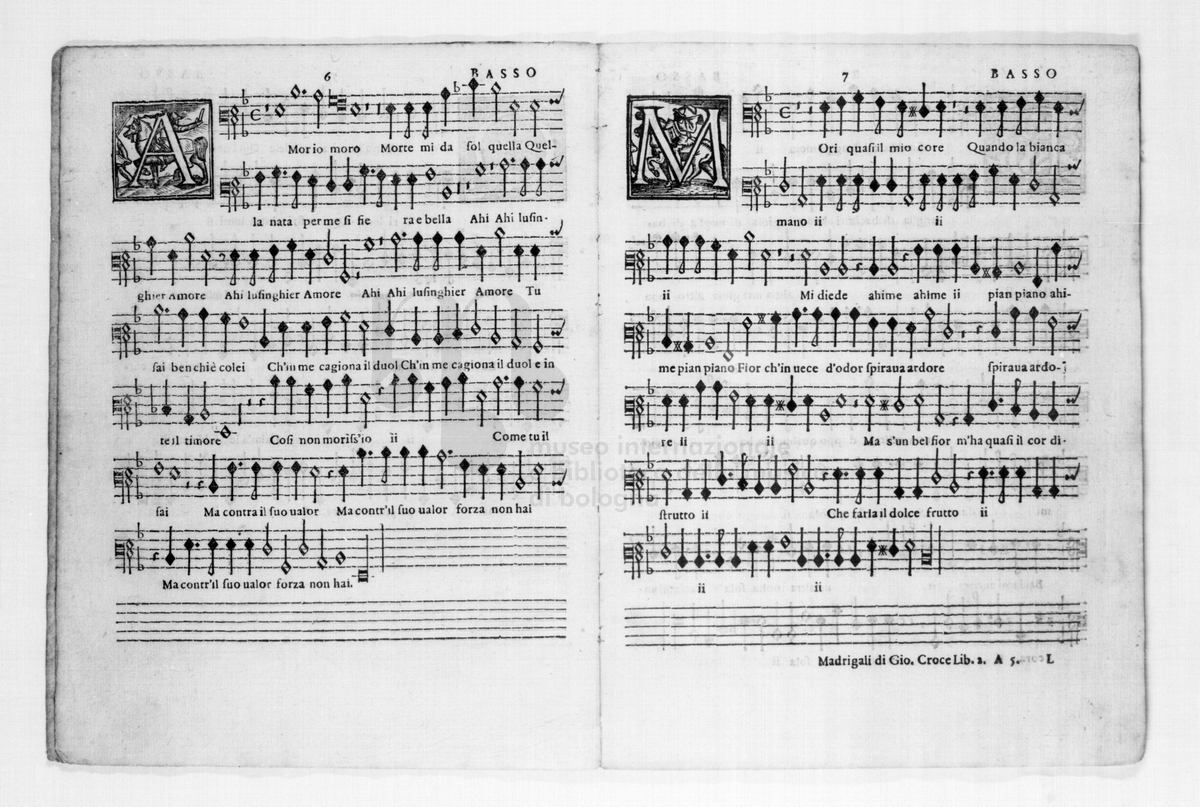 6 BASSO
A Morio moro Morte mi da sol quella Quel-
la nata per me si fie ra e bella Ahi Ahi lusin-
ghier Amore Ahi lusinghier Amore Ahi Ahi lusinghier Amore Tu
sai ben chiè colei Ch'in me cagiona il duol Ch'in me cagiona il duol e in
te il timore Così non moriss'io ii Come tu il
sai Ma contra il suo ualor Ma contr'il suo ualor forza non hai
Ma contr'il suo ualor forza non hai.
7 BASSO
M Ori quasi il mio core Quando la bianca
mano ii ii
ii Mi diede ahime ahime ii pian piano ahi-
me pian piano Fior ch'in uece d'odor spiraua ardore spiraua ardo-
re ii ii Ma s'un bel fior m'ha quasi il cor di-
strutto ii Che farla il dolce frutto ii
ii ii
Madrigali di Gio. Croce Lib. 2. A 5. L
museo internazionale
e biblioteca della musica
di bologna